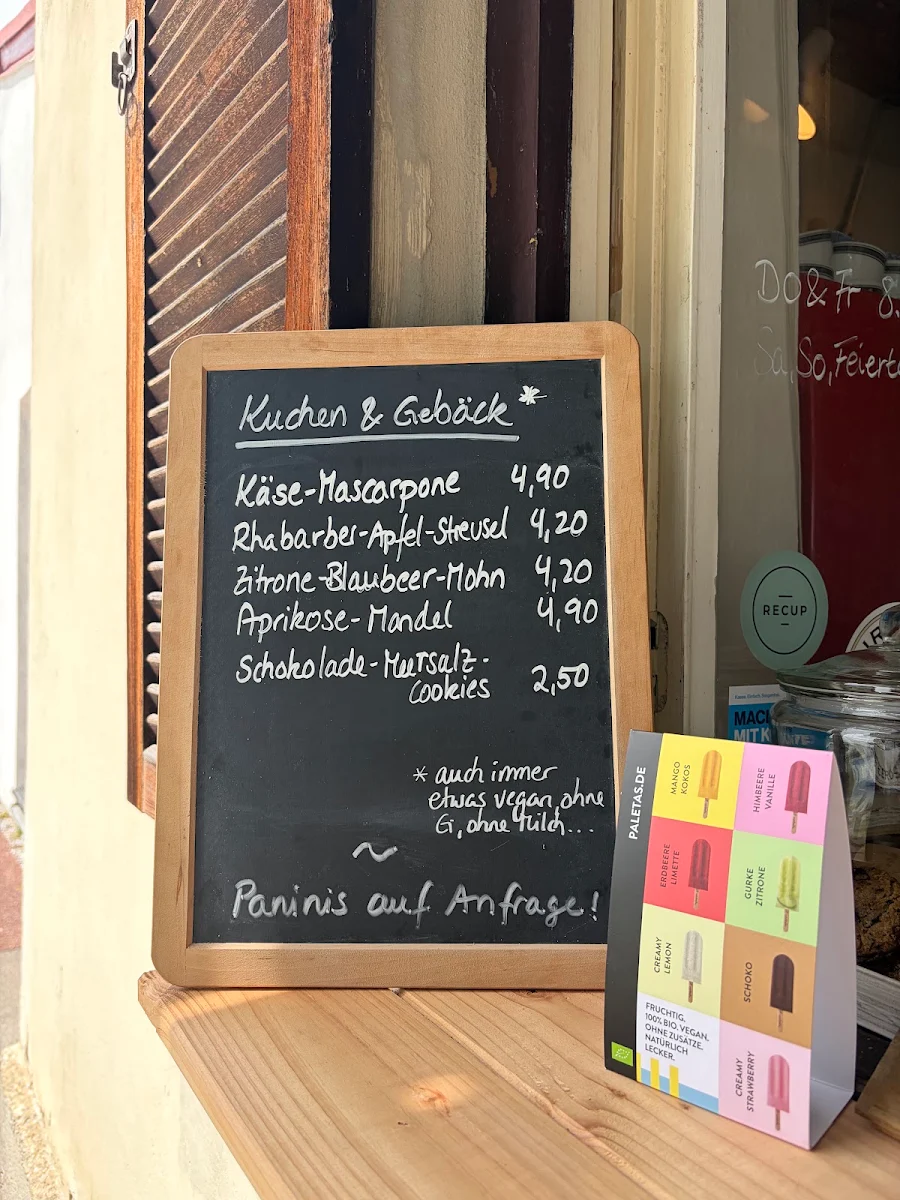 Kuchen & Gebäck*
Käse-Mascarpone 4,90
Rhabarber-Apfel-Streusel 4,20
Zitrone-Blaubeer-Mohn 4,20
Aprikose-Mandel 4,90
Schokolade-Meersalz-
Cookies 2,50
* auch immer
etwas vegan, ohne
Ei, ohne Milch...
~
Paninis auf Anfrage!
Do & Fr 8
Sa, So, Feierta
RECUP
MAC
MIT K
PALETAS.DE
MANGO
KOKOS
HIMBEERE
VANILLE
ERDBEERE
LIMETTE
GURKE
ZITRONE
CREAMY
LEMON
SCHOKO
FRUCHTIG.
100% BIO. VEGAN.
OHNE ZUSÄTZE.
NATÜRLICH
LECKER.
CREAMY
STRAWBERRY